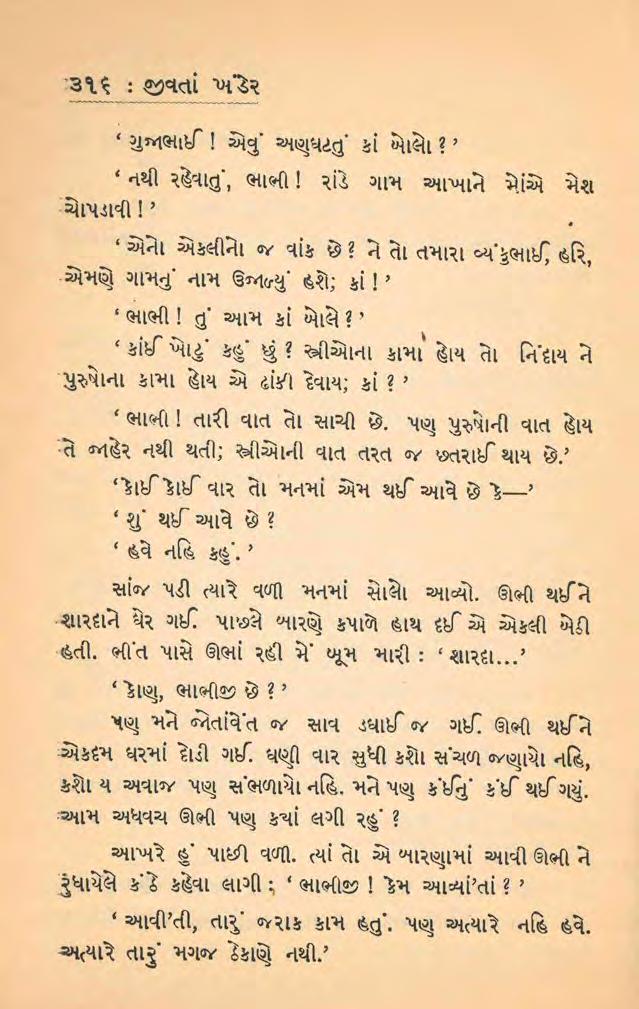 ૩૧૬ : જીવતાં ખંડેર
‘ ગુજાભાઈ ! એવું અણઘટતું કાં બોલો ? ’
‘ નથી રહેવાતું, ભાભી ! રાંડે ગામ આખાને મોંએ મેશ
ચોપડાવી ! ’
‘ એનો એકલીનો જ વાંક છે ? ને તો તમારા વ્યંકુભાઈ, હરિ,
એમણે ગામનું નામ ઉજાળ્યું હશે; કાં ! ’
‘ ભાભી ! તું આમ કાં બોલે ? ’
‘ કાંઈ ખોટું કહું છું ? સ્ત્રીઓના કામા હોય તો નિંદાય ને
પુરુષોના કામા હોય એ ઢાંકી દેવાય; કાં ? ’
‘ ભાભી ! તારી વાત તો સાચી છે. પણ પુરુષોની વાત હોય
તે જાહેર નથી થતી; સ્ત્રીઓની વાત તરત જ છતરાઈ થાય છે.’
‘ કોઈ કોઈ વાર તો મનમાં એમ થઈ આવે છે કે—’
‘ શું થઈ આવે છે ?
‘ હવે નહિ કહું. ’
સાંજ પડી ત્યારે વળી મનમાં સોલો આવ્યો. ઊભી થઈને
શારદાને ઘેર ગઈ. પાછલે બારણે કપાળે હાથ દઈ એ એકલી બેઠી
હતી. ભીંત પાસે ઊભાં રહી મેં બૂમ મારી : ‘ શારદા...’
‘ કોણ, ભાભીજી છે ? ’
પણ મને જોતાંવેંત જ સાવ ડઘાઈ જ ગઈ. ઊભી થઈને
એકદમ ઘરમાં દોડી ગઈ. ઘણી વાર સુધી કશો સંચળ જણાયો નહિ,
કશો ય અવાજ પણ સંભળાયો નહિ. મને પણ કંઈનું કંઈ થઈ ગયું.
આમ અધવચ ઊભી પણ કયાં લગી રહું ?
આખરે હું પાછી વળી. ત્યાં તો એ બારણામાં આવી ઊભી ને
રુંધાયેલે કંઠે કહેવા લાગી : ‘ ભાભીજી ! કેમ આવ્યાં’તાં ? ’
‘ આવી’તી, તારું જરાક કામ હતું. પણ અત્યારે નહિ હવે.
અત્યારે તારું મગજ ઠેકાણે નથી.’